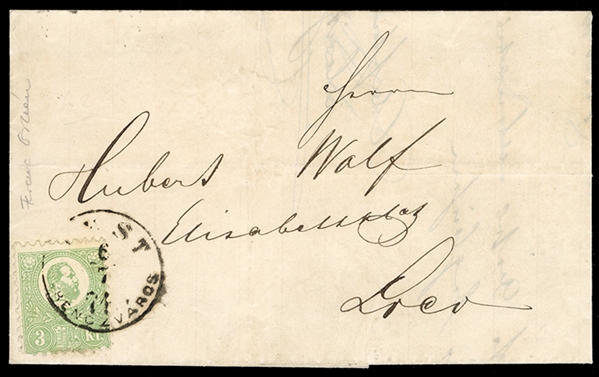 Herrn
Hubert Wolf
Elisabethplatz
Loco
PEST
FERENCZVÁROS
3 Kr